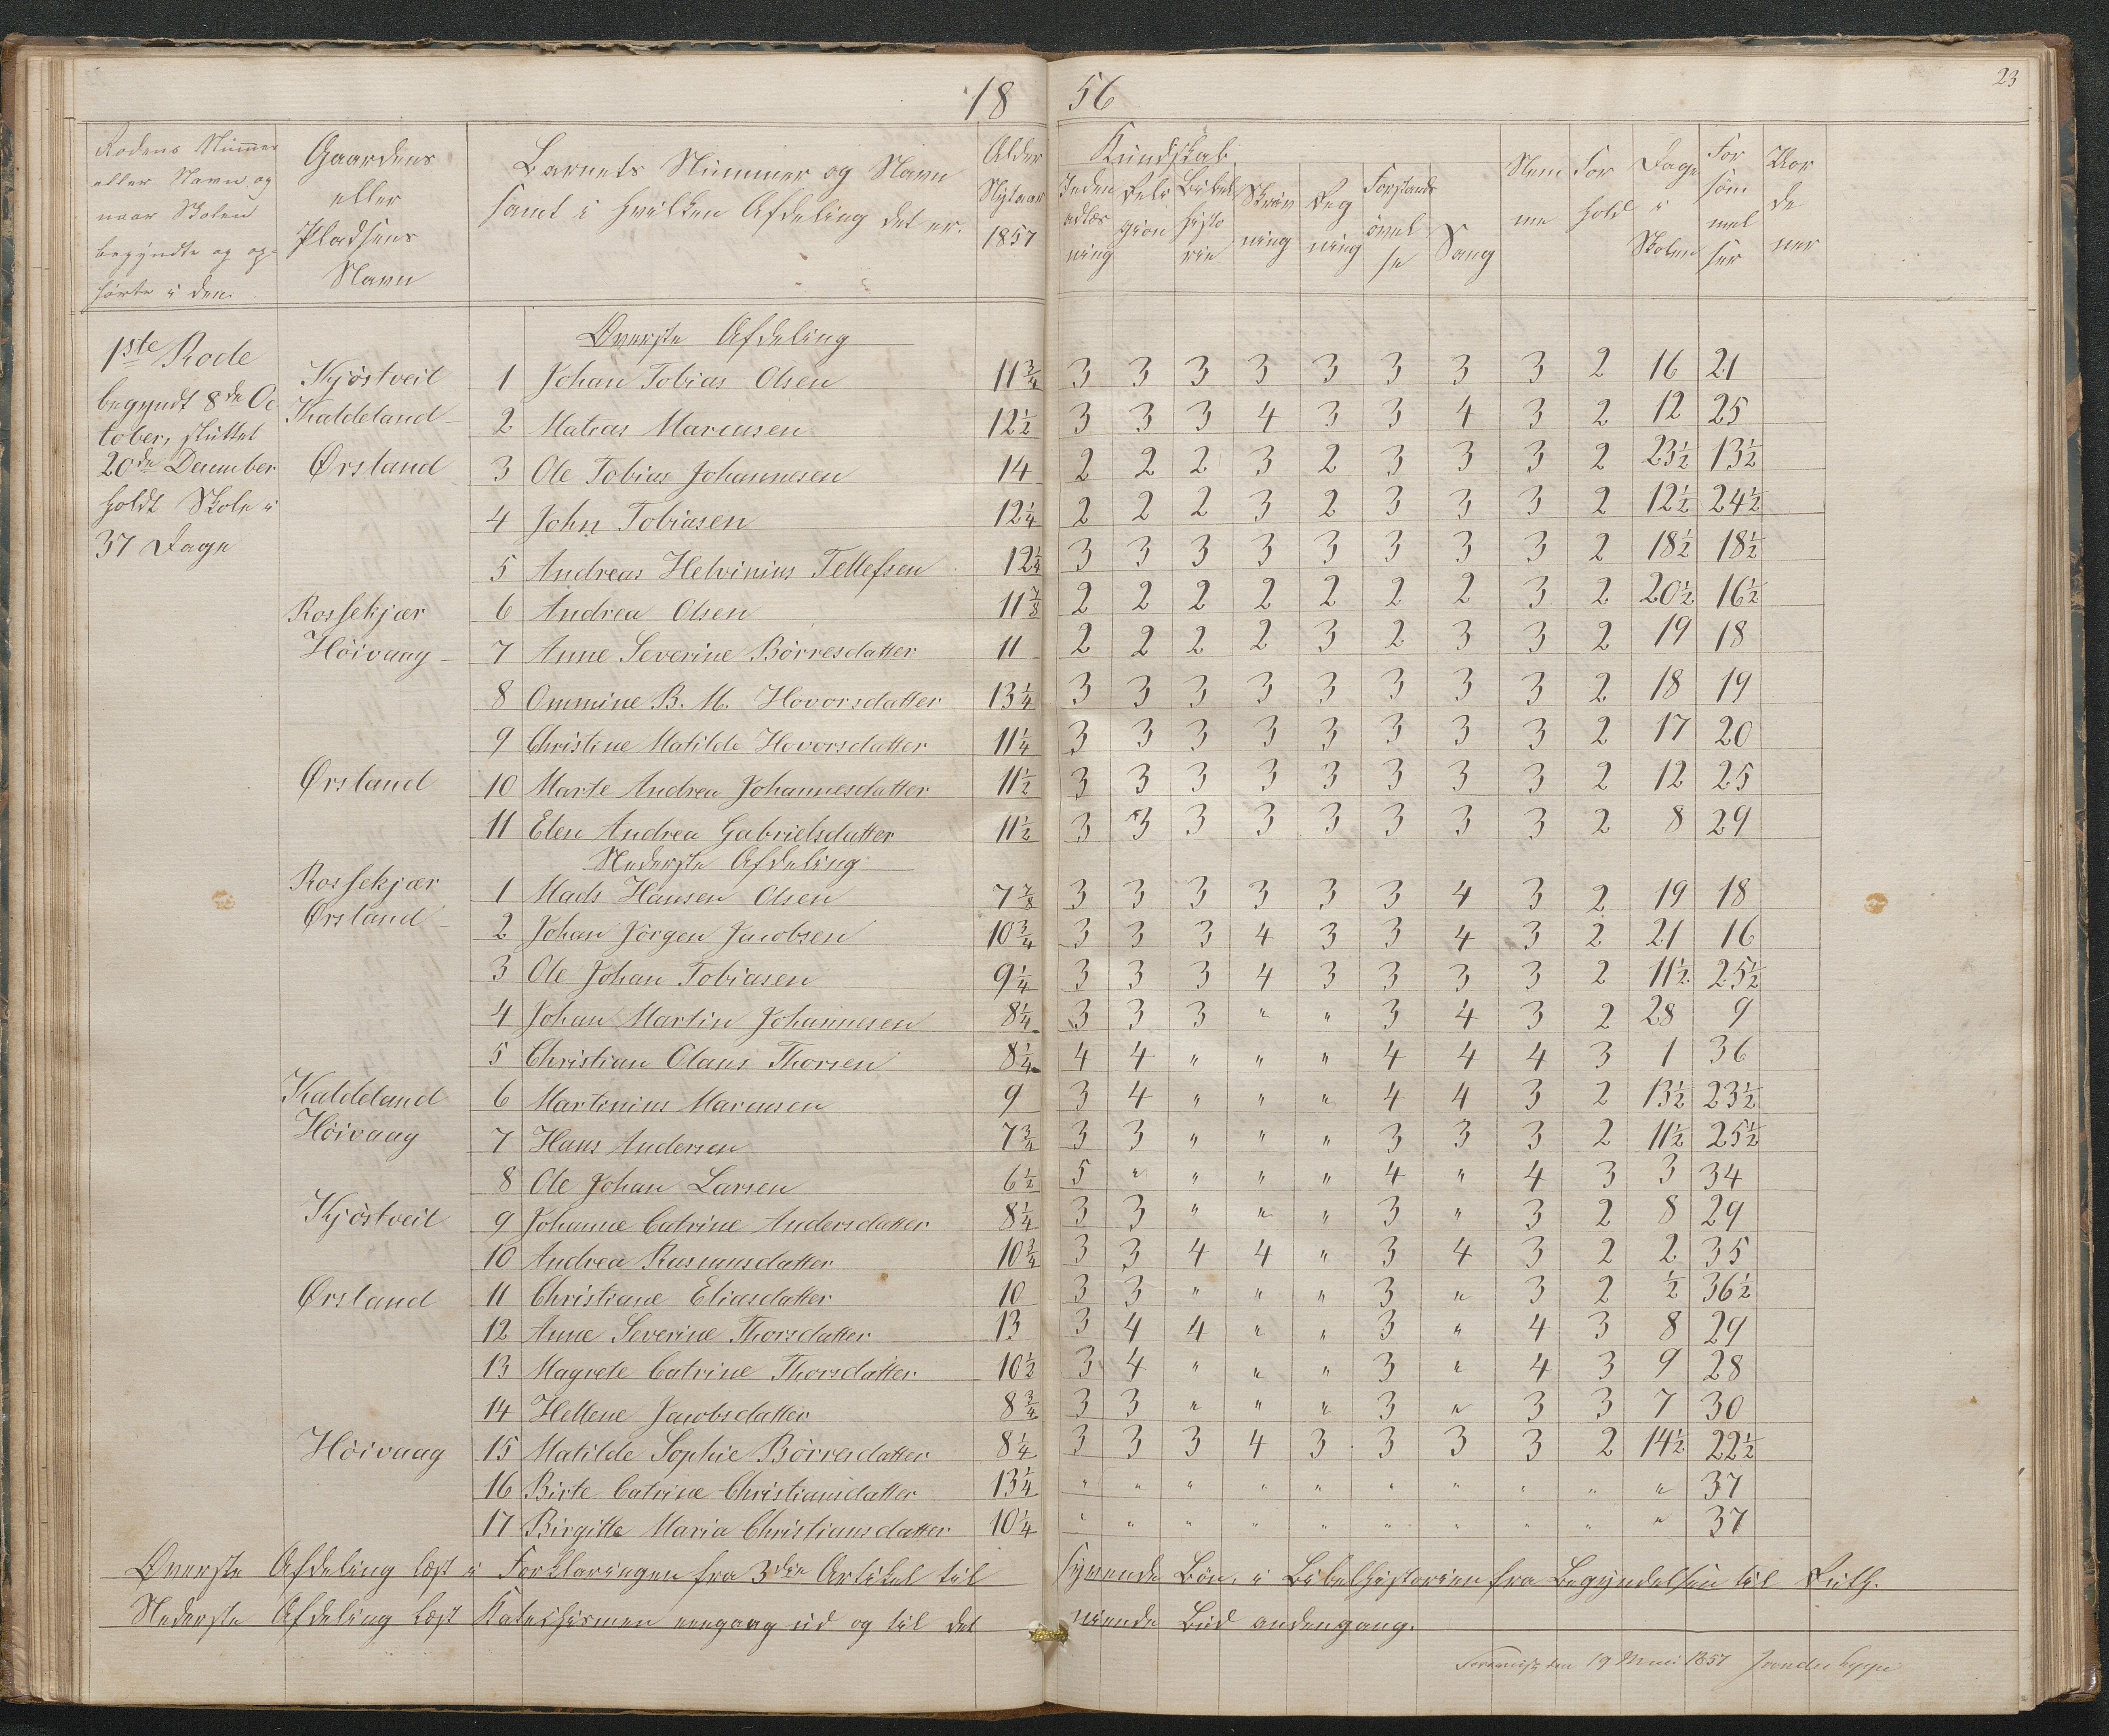 18 56
23
Rodens Nummer eller Navn og naar Skolen begyndte og ophørte i den.
Gaardens eller Pladsens Navn
Barnets Nummer og Navn samt i hvilken Afdeling det er.
Alder Nytaar 1857
Kundskab
Indenadlæsning
Religion
Bibelhistorie
Skrivning
Regning
Forstandsøvelse
Sang
Nemme
Forhold
Dage i Skolen
Forsømmelser
1ste Rode
begyndt 8de Oc
tober, sluttet
20de December
holdt Skole i
37 Dage
Øverste Afdeling
Kjöstveit 1 Johan Tobias Olsen 11 3/4 3 3 3 3 3 3 3 3 2 16 21
Kaldeland 2 Matias Marcusen 12 1/2 3 3 3 4 3 3 4 3 2 12 25
Ørsland 3 Ole Tobias Johannesen 14 2 2 2 3 2 3 3 3 2 23 1/2 13 1/2
4 John Tobiasen 12 1/4 2 2 2 3 2 3 3 3 2 12 1/2 24 1/2
5 Andreas Helvinius Tellefsen 12 1/4 3 3 3 3 3 3 3 3 2 18 1/2 18 1/2
Rossekjær 6 Andrea Olsen 11 7/8 2 2 2 2 2 2 2 3 2 20 1/2 16 1/2
Höivaag 7 Anne Severine Börresdatter 11 2 2 2 2 3 2 3 3 2 19 18
8 Ommine B. M. Hovorsdatter 13 1/4 3 3 3 3 3 3 3 3 2 18 19
9 Christine Matilde Hovorsdatter 11 1/4 3 3 3 3 3 3 3 3 2 17 20
Ørsland 10 Marte Andrea Johannesdatter 11 1/2 3 3 3 3 3 3 3 3 2 12 25
11 Elen Andrea Gabrielsdatter 11 1/2 3 3 3 3 3 3 3 3 2 8 29
Nederste Afdeling
Rossekjær 1 Mads Hansen Olsen 7 7/8 3 3 3 3 3 3 4 3 2 19 18
Ørsland 2 Johan Jörgen Jacobsen 10 3/4 3 3 3 4 3 3 4 3 2 21 16
3 Ole Johan Tobiasen 9 1/4 3 3 3 4 3 3 3 3 2 11 1/2 25 1/2
4 Johan Martin Johannesen 8 1/4 3 3 3 " " 3 4 3 2 28 9
5 Christian Olaus Thorsen 8 1/4 4 4 " " " 4 4 4 3 1 36
Kaldeland 6 Martinius Marcusen 9 3 4 " " " 4 4 3 2 13 1/2 23 1/2
Höivaag 7 Hans Andersen 7 3/4 3 3 " " " 3 3 3 2 11 1/2 25 1/2
8 Ole Johan Larsen 6 1/2 5 " " " " 4 " 4 3 3 34
Kjöstveit 9 Johanne Catrine Andersdatter 8 1/4 3 3 " " " 3 " 3 2 8 29
10 Andrea Rasmusdatter 10 3/4 3 3 4 4 " 3 4 3 2 2 35
Ørsland 11 Christiane Eliasdatter 10 3 3 " " " 3 " 3 2 1/2 36 1/2
12 Anne Severine Thorsdatter 13 3 4 4 " " 3 " 4 3 8 29
13 Magrete Catrine Thorsdatter 10 1/2 3 4 " " " 3 " 4 3 9 28
14 Hellene Jacobsdatter 8 3/4 3 3 " " " 3 " 3 3 7 30
Höivaag 15 Matilde Sophie Börresdatter 8 1/4 3 3 3 4 3 3 3 3 2 14 1/2 22 1/2
16 Birte Catrine Christiansdatter 13 1/4 " " " " " " " " " " 37
17 Birgitte Maria Christiansdatter 10 1/4 " " " " " " " " " " 37
Øverste Afdeling læst i Forklaringen fra 3die Artikel til syvende Bön, i Bibelhistorien fra Begyndelsen til Ruth.
Nederste Afdeling læst Katechismen eengang ud og til det niende Bud andengang.
den 19 Mai 1857